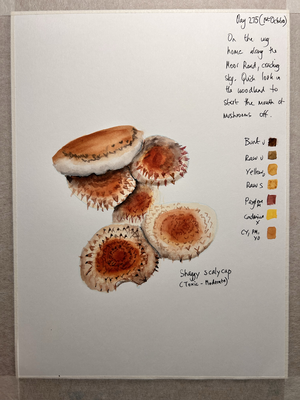 Day 235 (1st October)
On the way
home along the
Moor Road, cracking
sky. Quick look in
the woodland to
start the month of
mushrooms off.
Burnt U
Raw U
Yellow
Raw S
Perylene
M
Cadmium
Y
CY, PM,
YO
Shaggy scalycap
(Toxic - Moderate)